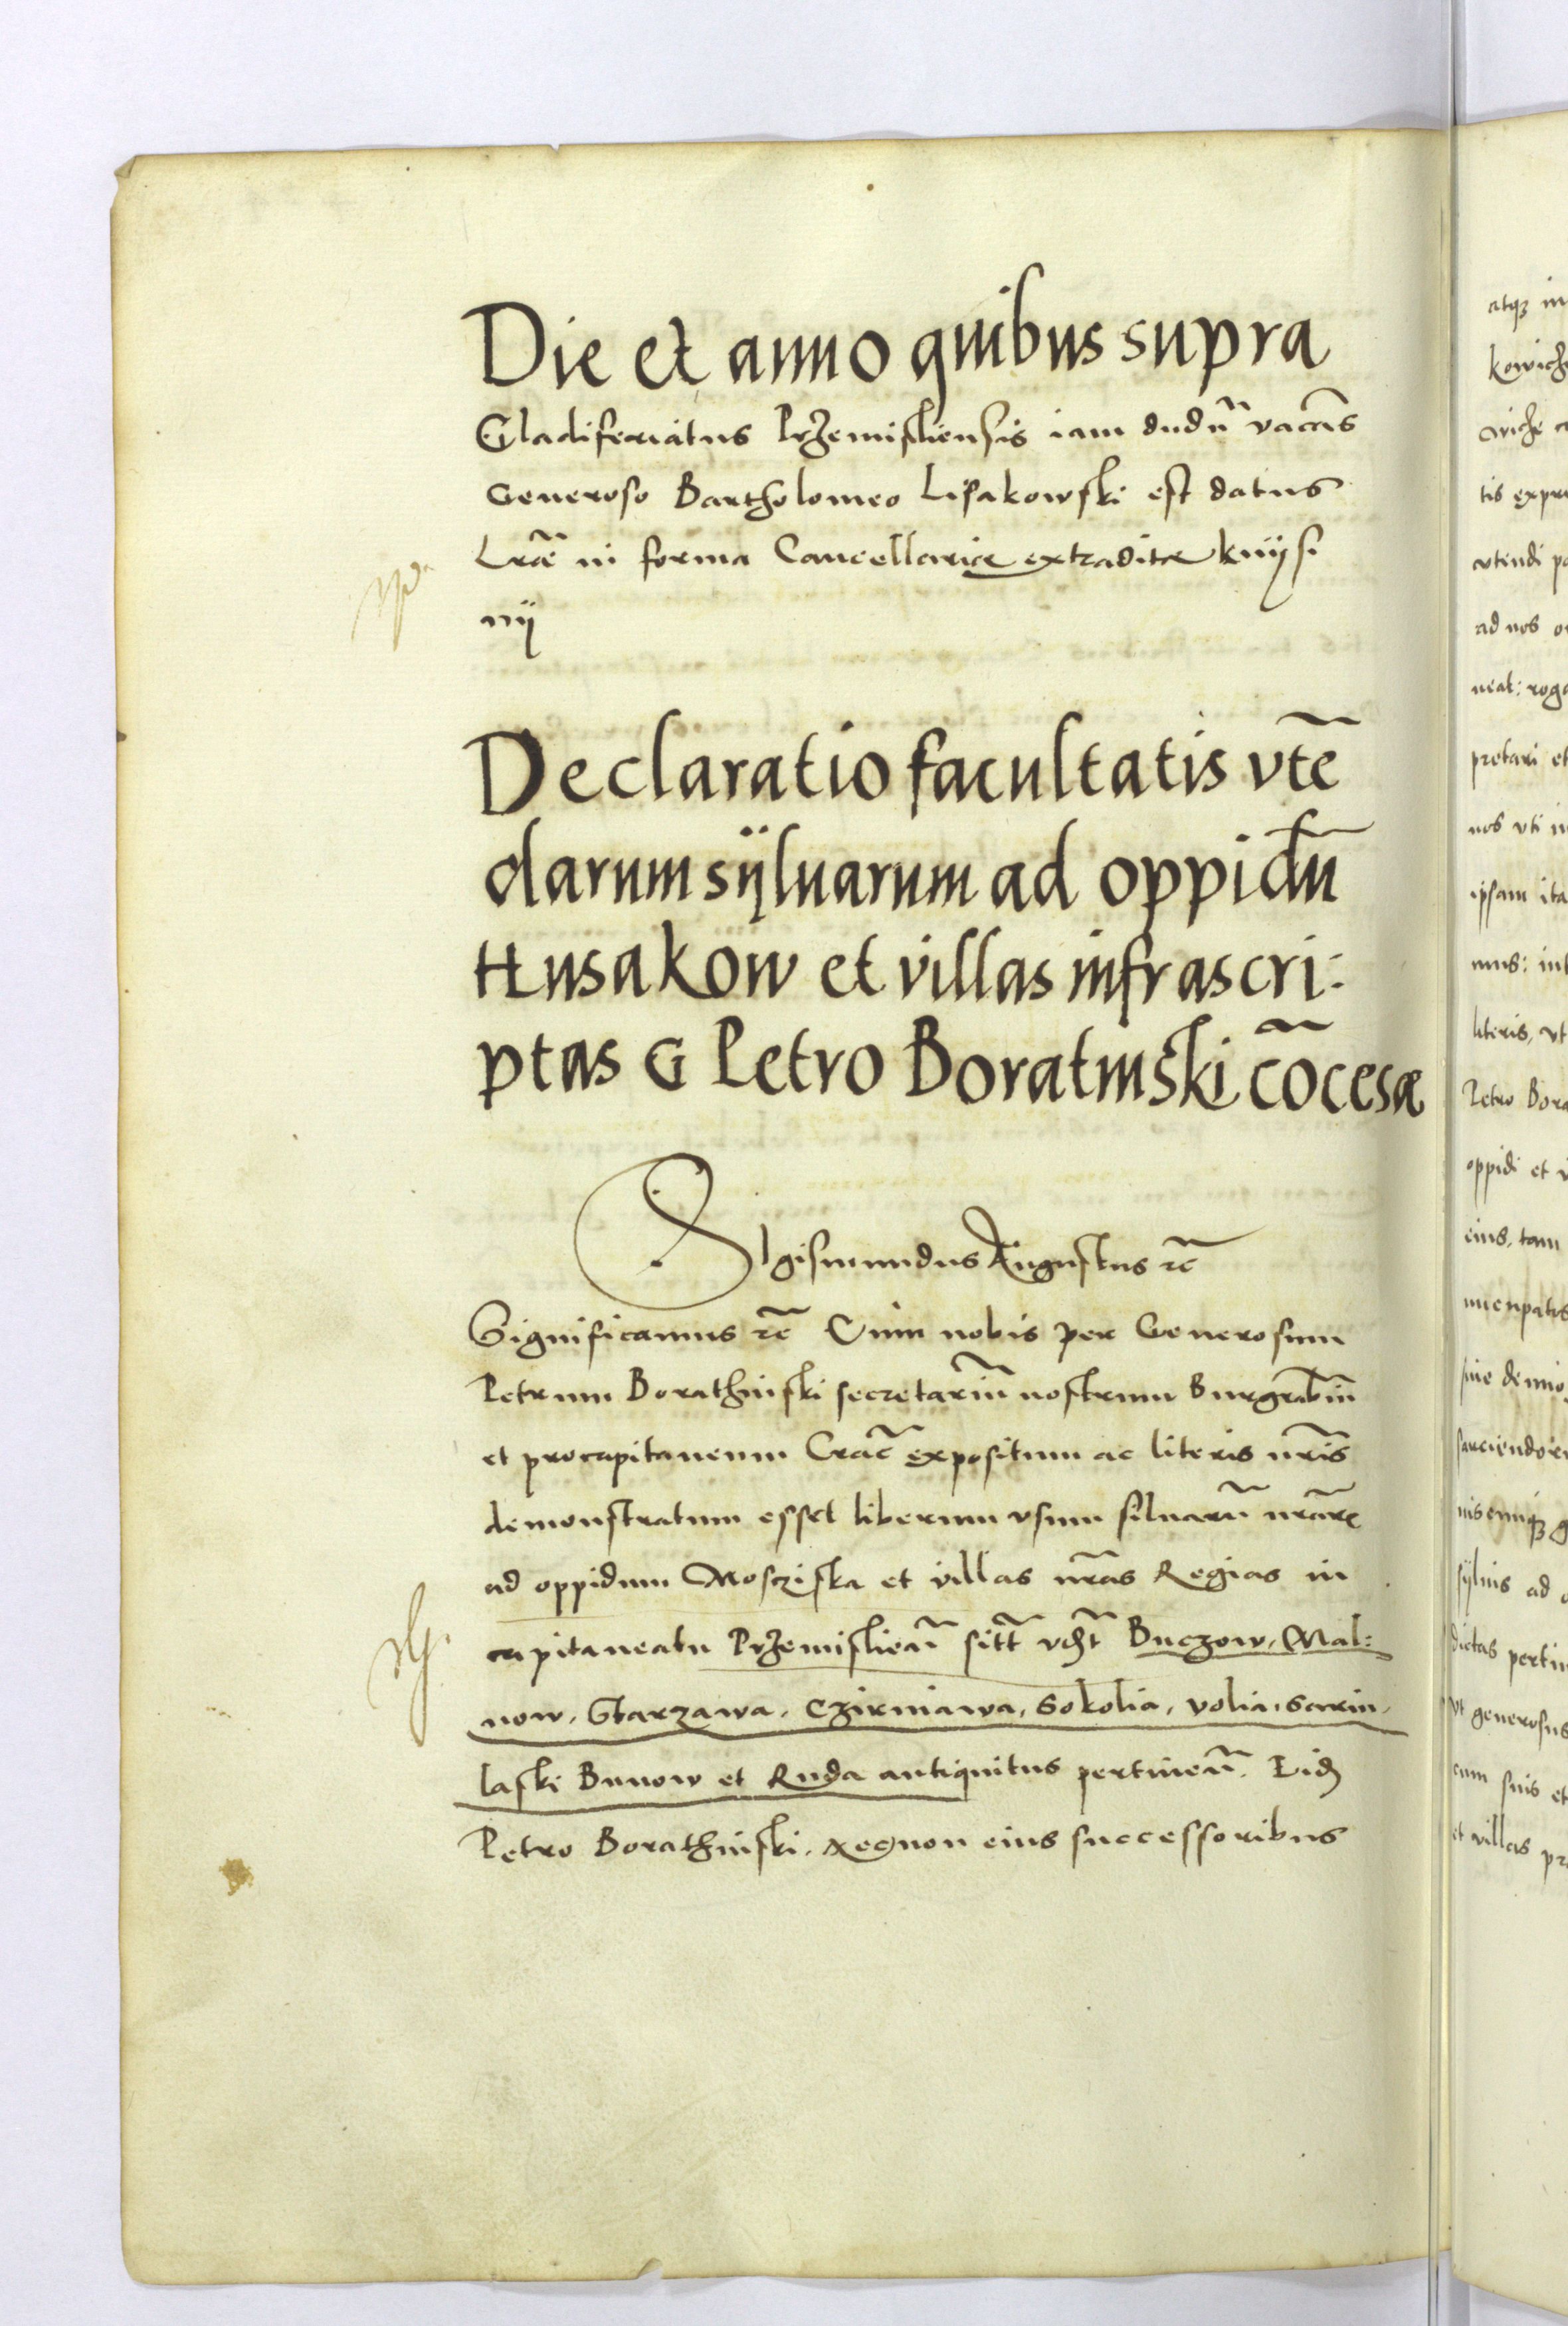 Die et anno quibus supra
Gladiferiatus Przemisliensis iam dudū vacās
Generoso Bartholomeo Lisakowski est datus
Lræ in forma Cancellariæ extraditæ
Declaratio facultatis vtē
darum sÿluarum ad oppidū
Husakow et villas infrascri:
ptas G Petro Boratinski cōcesæ
Sigismundus Augustus rc̄
Significamus rc̄ Cum nobis per Generosum
Petrum Borathinski secretariū nostrum Burgrabiū
et procapitaneum Crac̄ expositum ac literis nr̄is
demonstratum esset liberum vsum siluarū nr̄ar
ad oppidum Mosciska et villas nr̄as Regias in
capitaneatu Przemislien̄ sitt̄ vdt̄ Buczow, Mal:
now, Starzawa, Czirniawa, Sokolia, volia, sarin,
laski Bunow et Ruda antiquitus pertinen̄. Eid
Petro Borathinski, necnon eius successoribus
atq in
tis expr
vtendi p
ad nos o
neat: roga
pretari et
nos vti in
ipsam ita
mus: int
literis, vt
Petro Bora
oppidi et v
eius, tam
siue demo
sÿluis ad o
dictas pertin
vt generosus
cum suis et
et villas pr